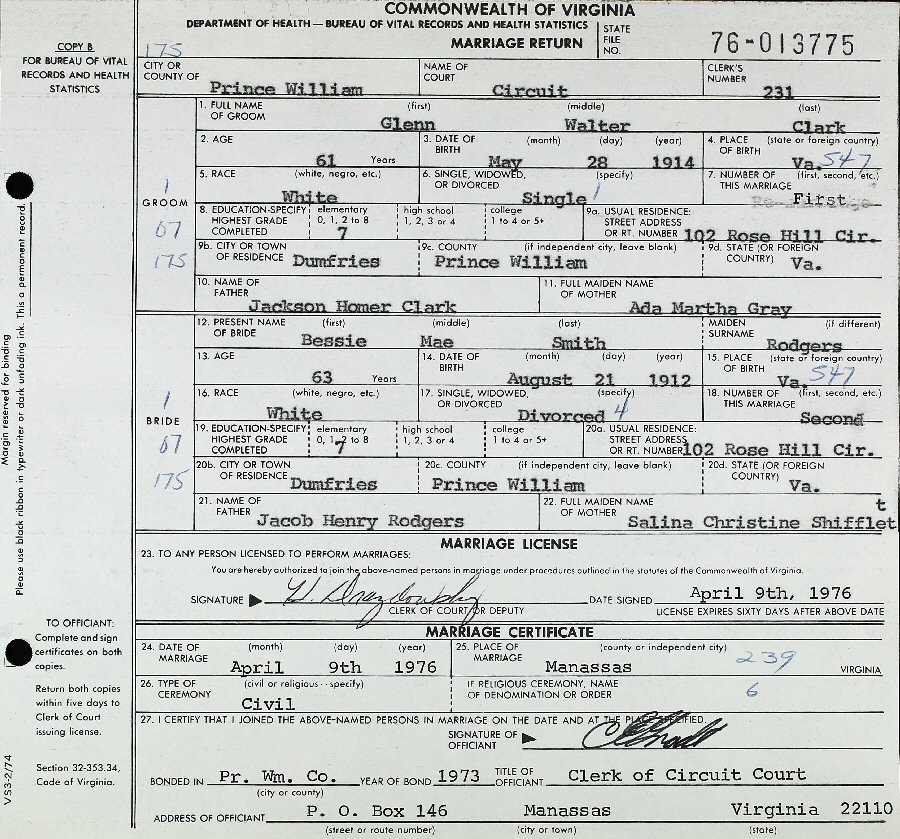 COMMONWEALTH OF VIRGINIA
DEPARTMENT OF HEALTH — BUREAU OF VITAL RECORDS AND HEALTH STATISTICS
MARRIAGE RETURN
STATE FILE NO. 76-013775
COPY B
FOR BUREAU OF VITAL
RECORDS AND HEALTH
STATISTICS
175
CITY OR COUNTY OF Prince William
NAME OF COURT Circuit
CLERK'S NUMBER 231
GROOM
1
67
175
1. FULL NAME OF GROOM (first) Glenn (middle) Walter (last) Clark
2. AGE 61 Years
3. DATE OF BIRTH (month) May (day) 28 (year) 1914
4. PLACE OF BIRTH (state or foreign country) Va. 547
5. RACE (white, negro, etc.) White
6. SINGLE, WIDOWED, OR DIVORCED (specify) Single 1
7. NUMBER OF THIS MARRIAGE (first, second, etc.) First
8. EDUCATION-SPECIFY HIGHEST GRADE COMPLETED elementary 0, 1, 2 to 8 7 high school 1, 2, 3 or 4 college 1 to 4 or 5+
9a. USUAL RESIDENCE: STREET ADDRESS OR RT. NUMBER 102 Rose Hill Cir.
9b. CITY OR TOWN OF RESIDENCE Dumfries
9c. COUNTY (if independent city, leave blank) Prince William
9d. STATE (OR FOREIGN COUNTRY) Va.
10. NAME OF FATHER Jackson Homer Clark
11. FULL MAIDEN NAME OF MOTHER Ada Martha Gray
BRIDE
1
67
175
12. PRESENT NAME OF BRIDE (first) Bessie (middle) Mae (last) Smith
MAIDEN SURNAME (if different) Rodgers
13. AGE 63 Years
14. DATE OF BIRTH (month) August (day) 21 (year) 1912
15. PLACE OF BIRTH (state or foreign country) Va. 547
16. RACE (white, negro, etc.) White
17. SINGLE, WIDOWED, OR DIVORCED (specify) Divorced 4
18. NUMBER OF THIS MARRIAGE (first, second, etc.) Second
19. EDUCATION-SPECIFY HIGHEST GRADE COMPLETED elementary 0, 1, 2 to 8 7 high school 1, 2, 3 or 4 college 1 to 4 or 5+
20a. USUAL RESIDENCE: STREET ADDRESS OR RT. NUMBER 102 Rose Hill Cir.
20b. CITY OR TOWN OF RESIDENCE Dumfries
20c. COUNTY (if independent city, leave blank) Prince William
20d. STATE (OR FOREIGN COUNTRY) Va.
21. NAME OF FATHER Jacob Henry Rodgers
22. FULL MAIDEN NAME OF MOTHER Salina Christine Shifflet t
MARRIAGE LICENSE
23. TO ANY PERSON LICENSED TO PERFORM MARRIAGES:
You are hereby authorized to join the above-named persons in marriage under procedures outlined in the statutes of the Commonwealth of Virginia.
SIGNATURE
CLERK OF COURT/OR DEPUTY
DATE SIGNED April 9th, 1976
LICENSE EXPIRES SIXTY DAYS AFTER ABOVE DATE
MARRIAGE CERTIFICATE
24. DATE OF MARRIAGE (month) April (day) 9th (year) 1976
25. PLACE OF MARRIAGE (county or independent city) Manassas 239 VIRGINIA
26. TYPE OF CEREMONY (civil or religious--specify) Civil
IF RELIGIOUS CEREMONY, NAME OF DENOMINATION OR ORDER 6
27. I CERTIFY THAT I JOINED THE ABOVE-NAMED PERSONS IN MARRIAGE ON THE DATE AND AT THE PLACE SPECIFIED.
SIGNATURE OF OFFICIANT
BONDED IN Pr. Wm. Co. (city or county) YEAR OF BOND 1973 TITLE OF OFFICIANT Clerk of Circuit Court
ADDRESS OF OFFICIANT P. O. Box 146 Manassas Virginia 22110
(street or route number) (city or town) (state)
Margin reserved for binding
Please use black ribbon in typewriter or dark unfading ink. This a permanent record.
TO OFFICIANT:
Complete and sign
certificates on both
copies.
Return both copies
within five days to
Clerk of Court
issuing license.
Section 32-353.34,
Code of Virginia.
VS3-2/74